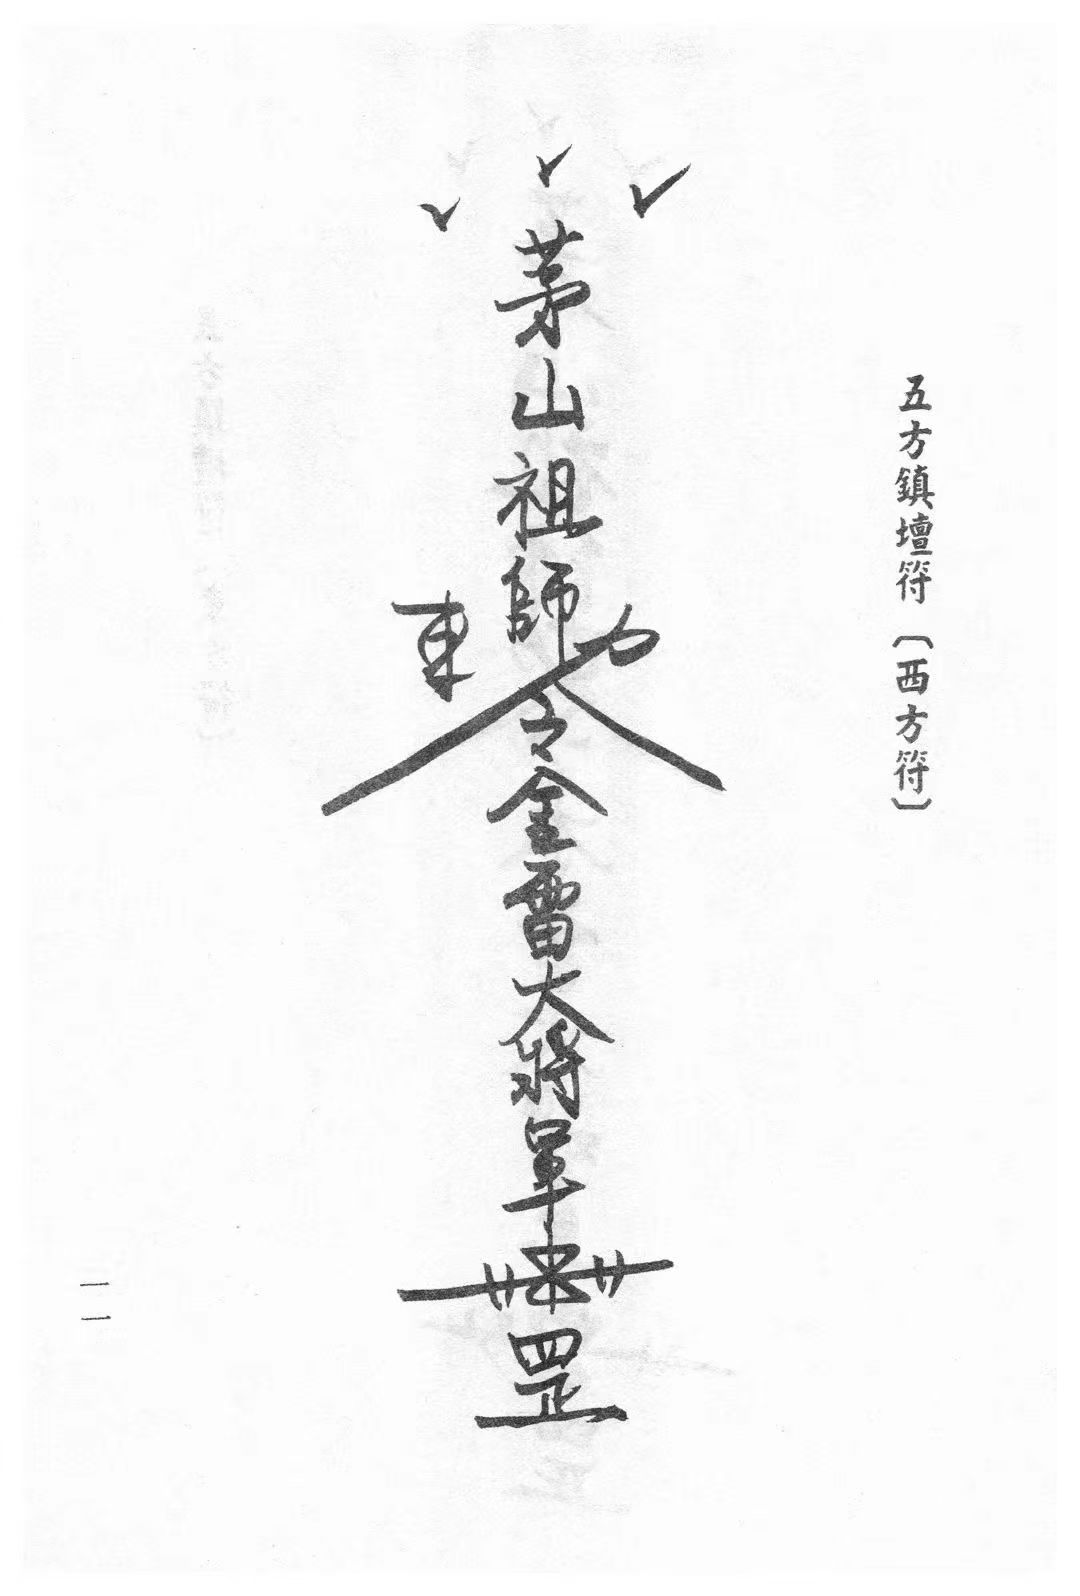 五方鎮壇符〔西方符〕
茅山祖師
東
力
令金雷大將軍
罡
一一